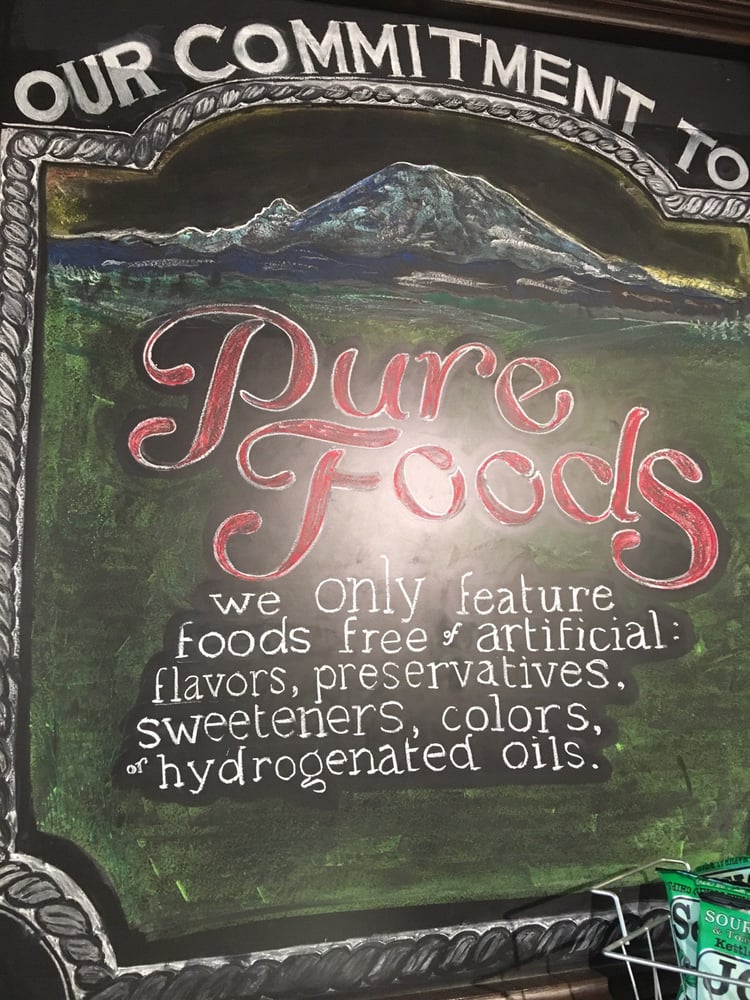 OUR COMMITMENT TO
Pure
Foods
we only feature
foods free of artificial:
flavors, preservatives,
sweeteners, colors,
or hydrogenated oils.
SOUR
Kettl